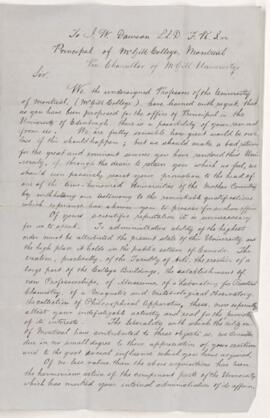 To J. W. Dawson LL.D. F.R.S.
Principal of McGill College, Montreal
Vice Chancellor of McGill University
Sir,
We the undersigned Professors of the University
of Montreal, (McGill College), have learned with regret, that
as you have been proposed for the office of Principal in the
University of Edinburgh, there is a possibility of your removal
from us. We are fully sensible how great would be our
loss if this should happen; but we should make a bad return
for the great and eminent services you have rendered this Univ
ersity, if through the desire to retain you which we feel, we
should even passively resist your promotion to the head of
one of the time-honoured Universities of the Mother Country
by withholding our testimony to the remarkable qualifications
which experience has shown you to possess for such an office.
Of your scientific reputation it is unnecessary
for us to speak. To administrative ability of the highest
order must be attributed the present state of this University and
the high place it holds in the public esteem of Canada. The
creation, practically, of the Faculty of Arts, the erection of a
large part of the College Buildings, the establishment of
new Professorships, of a Museum, of a Laboratory for Practical
Chemistry, of a Magnetic and Meteorological Observatory,
the collection of Philosophical Apparatus, these, more especially
attest your indefatigable activity and zeal for the promotion
of its interests. The liberality with which the citizens
of Montreal have contributed to these objects is, we consider
due in no small degree to their appreciation of your exertions
and to the great social influence which you have acquired.
Of no less value than the above acquisitions has been
the harmonious action of the component parts of the University
which has marked your internal administration of its affairs,